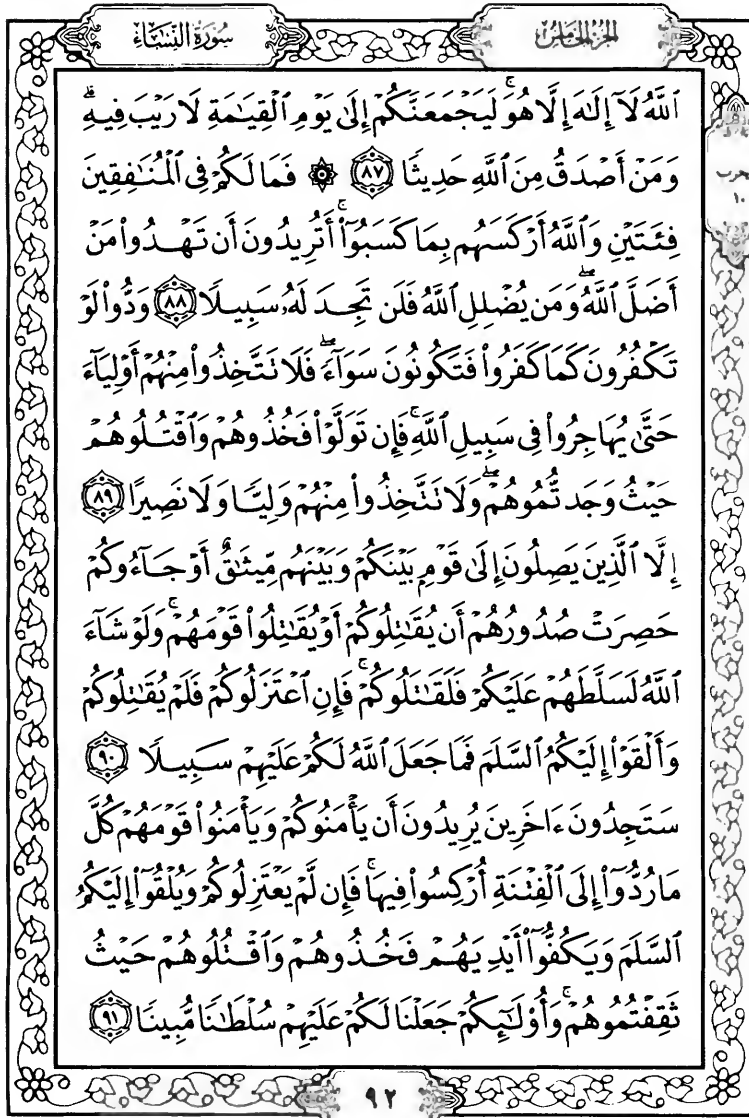 سُورَةُ النِّسَاءِ
الجزء الخامس
ٱللَّهُ لَآ إِلَٰهَ إِلَّا هُوَۚ لَيَجْمَعَنَّكُمْ إِلَىٰ يَوْمِ ٱلْقِيَٰمَةِ لَا رَيْبَ فِيهِۗ
وَمَنْ أَصْدَقُ مِنَ ٱللَّهِ حَدِيثًا ٨٧ ۞ فَمَا لَكُمْ فِى ٱلْمُنَٰفِقِينَ
فِئَتَيْنِ وَٱللَّهُ أَرْكَسَهُم بِمَا كَسَبُوٓا۟ۚ أَتُرِيدُونَ أَن تَهْدُوا۟ مَنْ
أَضَلَّ ٱللَّهُۖ وَمَن يُضْلِلِ ٱللَّهُ فَلَن تَجِدَ لَهُۥ سَبِيلًا ٨٨ وَدُّوا۟ لَوْ
تَكْفُرُونَ كَمَا كَفَرُوا۟ فَتَكُونُونَ سَوَآءًۖ فَلَا تَتَّخِذُوا۟ مِنْهُمْ أَوْلِيَآءَ
حَتَّىٰ يُهَاجِرُوا۟ فِى سَبِيلِ ٱللَّهِۚ فَإِن تَوَلَّوْا۟ فَخُذُوهُمْ وَٱقْتُلُوهُمْ
حَيْثُ وَجَدتُّمُوهُمْۖ وَلَا تَتَّخِذُوا۟ مِنْهُمْ وَلِيًّا وَلَا نَصِيرًا ٨٩
إِلَّا ٱلَّذِينَ يَصِلُونَ إِلَىٰ قَوْمٍۭ بَيْنَكُمْ وَبَيْنَهُم مِّيثَٰقٌ أَوْ جَآءُوكُمْ
حَصِرَتْ صُدُورُهُمْ أَن يُقَٰتِلُوكُمْ أَوْ يُقَٰتِلُوا۟ قَوْمَهُمْۚ وَلَوْ شَآءَ
ٱللَّهُ لَسَلَّطَهُمْ عَلَيْكُمْ فَلَقَٰتَلُوكُمْۚ فَإِنِ ٱعْتَزَلُوكُمْ فَلَمْ يُقَٰتِلُوكُمْ
وَأَلْقَوْا۟ إِلَيْكُمُ ٱلسَّلَمَ فَمَا جَعَلَ ٱللَّهُ لَكُمْ عَلَيْهِمْ سَبِيلًا ٩٠
سَتَجِدُونَ ءَاخَرِينَ يُرِيدُونَ أَن يَأْمَنُوكُمْ وَيَأْمَنُوا۟ قَوْمَهُمْ كُلَّ
مَا رُدُّوٓا۟ إِلَى ٱلْفِتْنَةِ أُرْكِسُوا۟ فِيهَاۚ فَإِن لَّمْ يَعْتَزِلُوكُمْ وَيُلْقُوٓا۟ إِلَيْكُمُ
ٱلسَّلَمَ وَيَكُفُّوٓا۟ أَيْدِيَهُمْ فَخُذُوهُمْ وَٱقْتُلُوهُمْ حَيْثُ
ثَقِفْتُمُوهُمْۚ وَأُو۟لَٰٓئِكُمْ جَعَلْنَا لَكُمْ عَلَيْهِمْ سُلْطَٰنًا مُّبِينًا ٩١
٩٢